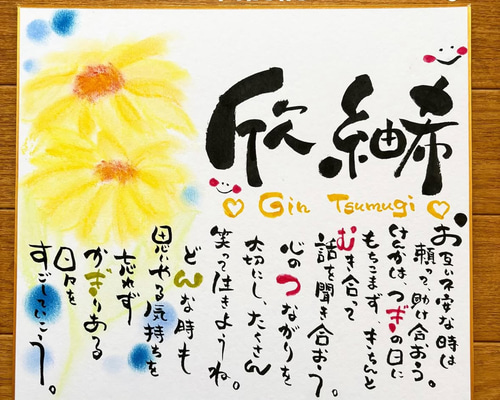 欣 紬希
Gin Tsumugi
お互い不安な時は
頼って、助け合おう。
けんかは つぎの日に
もちこまず きちんと
むき合って
話を聞き合おう。
心の つながりを
大切にし、たくさん
笑って生きようね。
どんな時も
思いやる気持ちを
忘れず
かぎりある
日々を
すごしていこう。